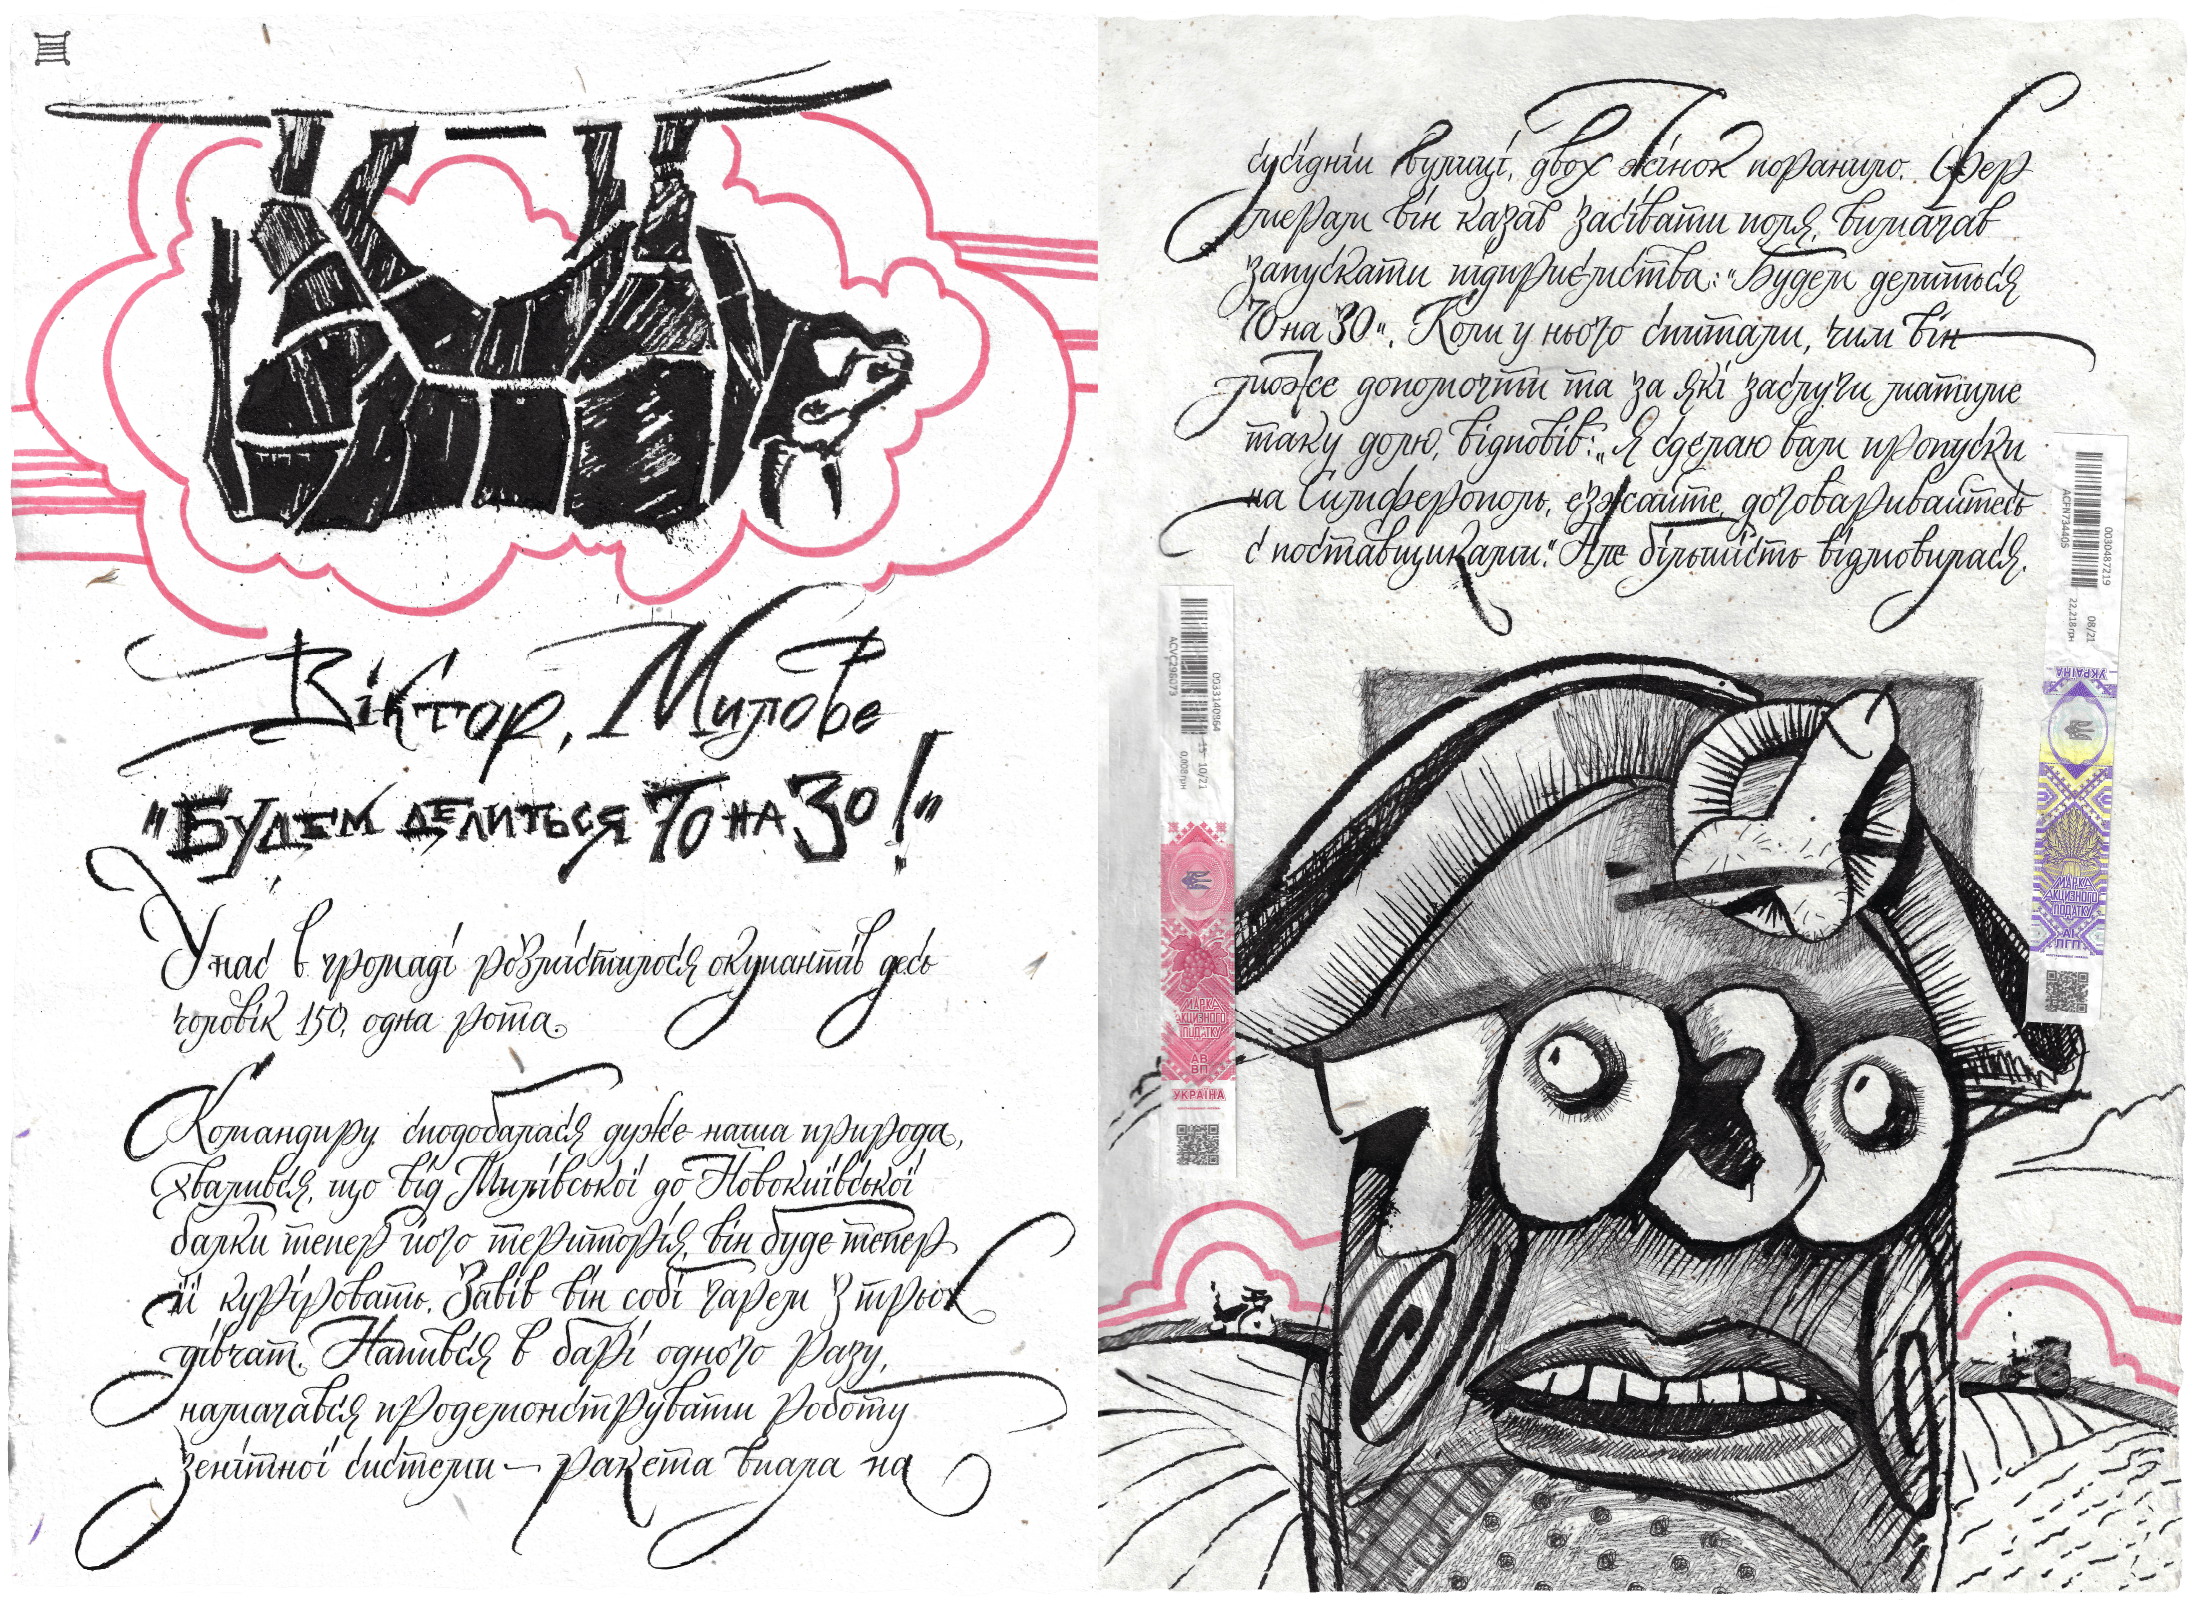 Віктор, Милове
"Будем делиться 70 на 30!"
У нас в громаді розмістилося окупантів десь
чоловік 150, одна рота.
Командиру сподобалася дуже наша природа,
хвалився, що від Милівської до Новокиївської
балки тепер його територія, він буде тепер
її куріровать. Завів він собі гарем з трьох
дівчат. Напився в барі одного разу,
намагався продемонструвати роботу
зенітної системи — ракета впала на
сусідній вулиці, двох жінок поранило. Фер
мерам він казав засівати поля, вимагав
запускати підприємства: "Будем делиться
70 на 30". Коли у нього спитали, чим він
може допомогти та за які заслуги матиме
таку долю, відповів: „Я сделаю вам пропуски
на Симферополь, езжайте, договаривайтесь
с поставщиками". Але більшість відмовилася.
ACVC296073
0033140954
10/21
УКРАЇНА
МАРКА
АКЦИЗНОГО
ПОДАТКУ
АВ
ВП
ACFN734405
0030487219
08/21
22,218грн
УКРАЇНА
МАРКА
АКЦИЗНОГО
ПОДАТКУ
АІ
ЛГП